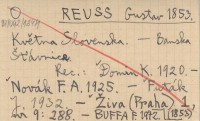 REUSS Gustav 1853.
Května Slovenska. - Banska
Štiavnice.
Rec.: Domin K. 1920. -
Novák F. A. 1925. - Futák
J. 1932. - Živa (Praha) 1,
nr 9: 288. - BUFFA F. 1972. (1853)